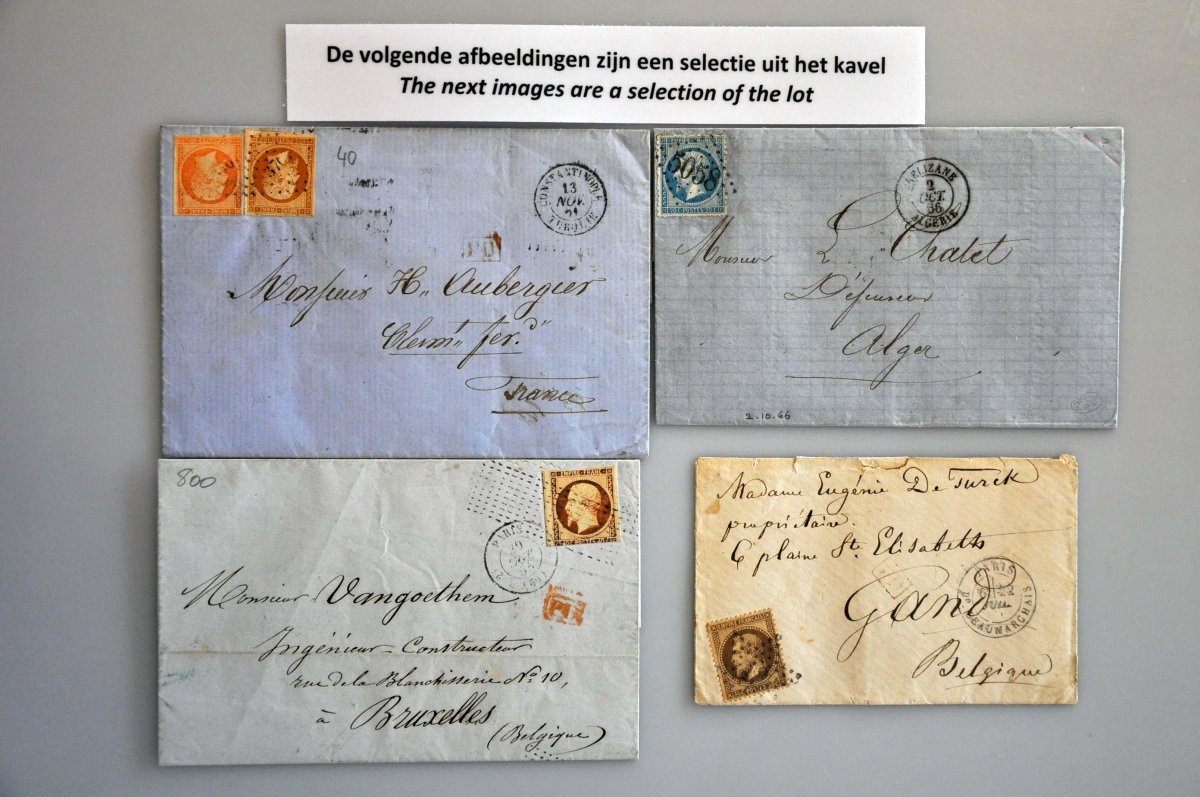 De volgende afbeeldingen zijn een selectie uit het kavel
The next images are a selection of the lot
40
CONSTANTINOPLE
13
NOV.
TURQUIE
PD
Monsieur H. Aubergier
Clermt fer.d
France
5058
RELIZANE
2
OCT.
66
ALGERIE
Monsieur L. Chalet
Défenseur
Alger
2-10-66
800
EMPIRE FRANC
PARIS
Monsieur Vangoethem
Ingénieur-Constructeur
rue de la Blanchisserie No 10,
à Bruxelles
(Belgique)
Madame Eugénie De Turck
propriétaire.
6 plaine Ste Elisabeth
Gand
Belgique
PARIS
BD BEAUMARCHAIS
EMPIRE FRANÇAIS